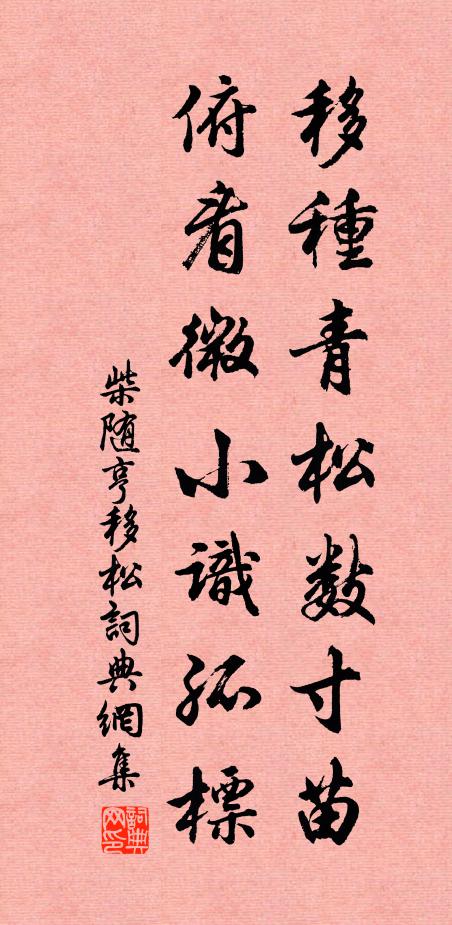 移種青松數寸苗
俯看微小識孤標
柴随亨移松詞典網集
詞典网印